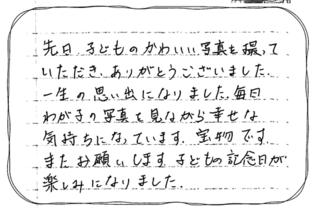 先日、子どものかわいい写真を撮って
いただき、ありがとうございました。
一生の思い出になりました。毎日
わが子の写真を見ながら幸せな
気持ちになっています。宝物です。
またお願いします。子どもの記念日が
楽しみになりました。